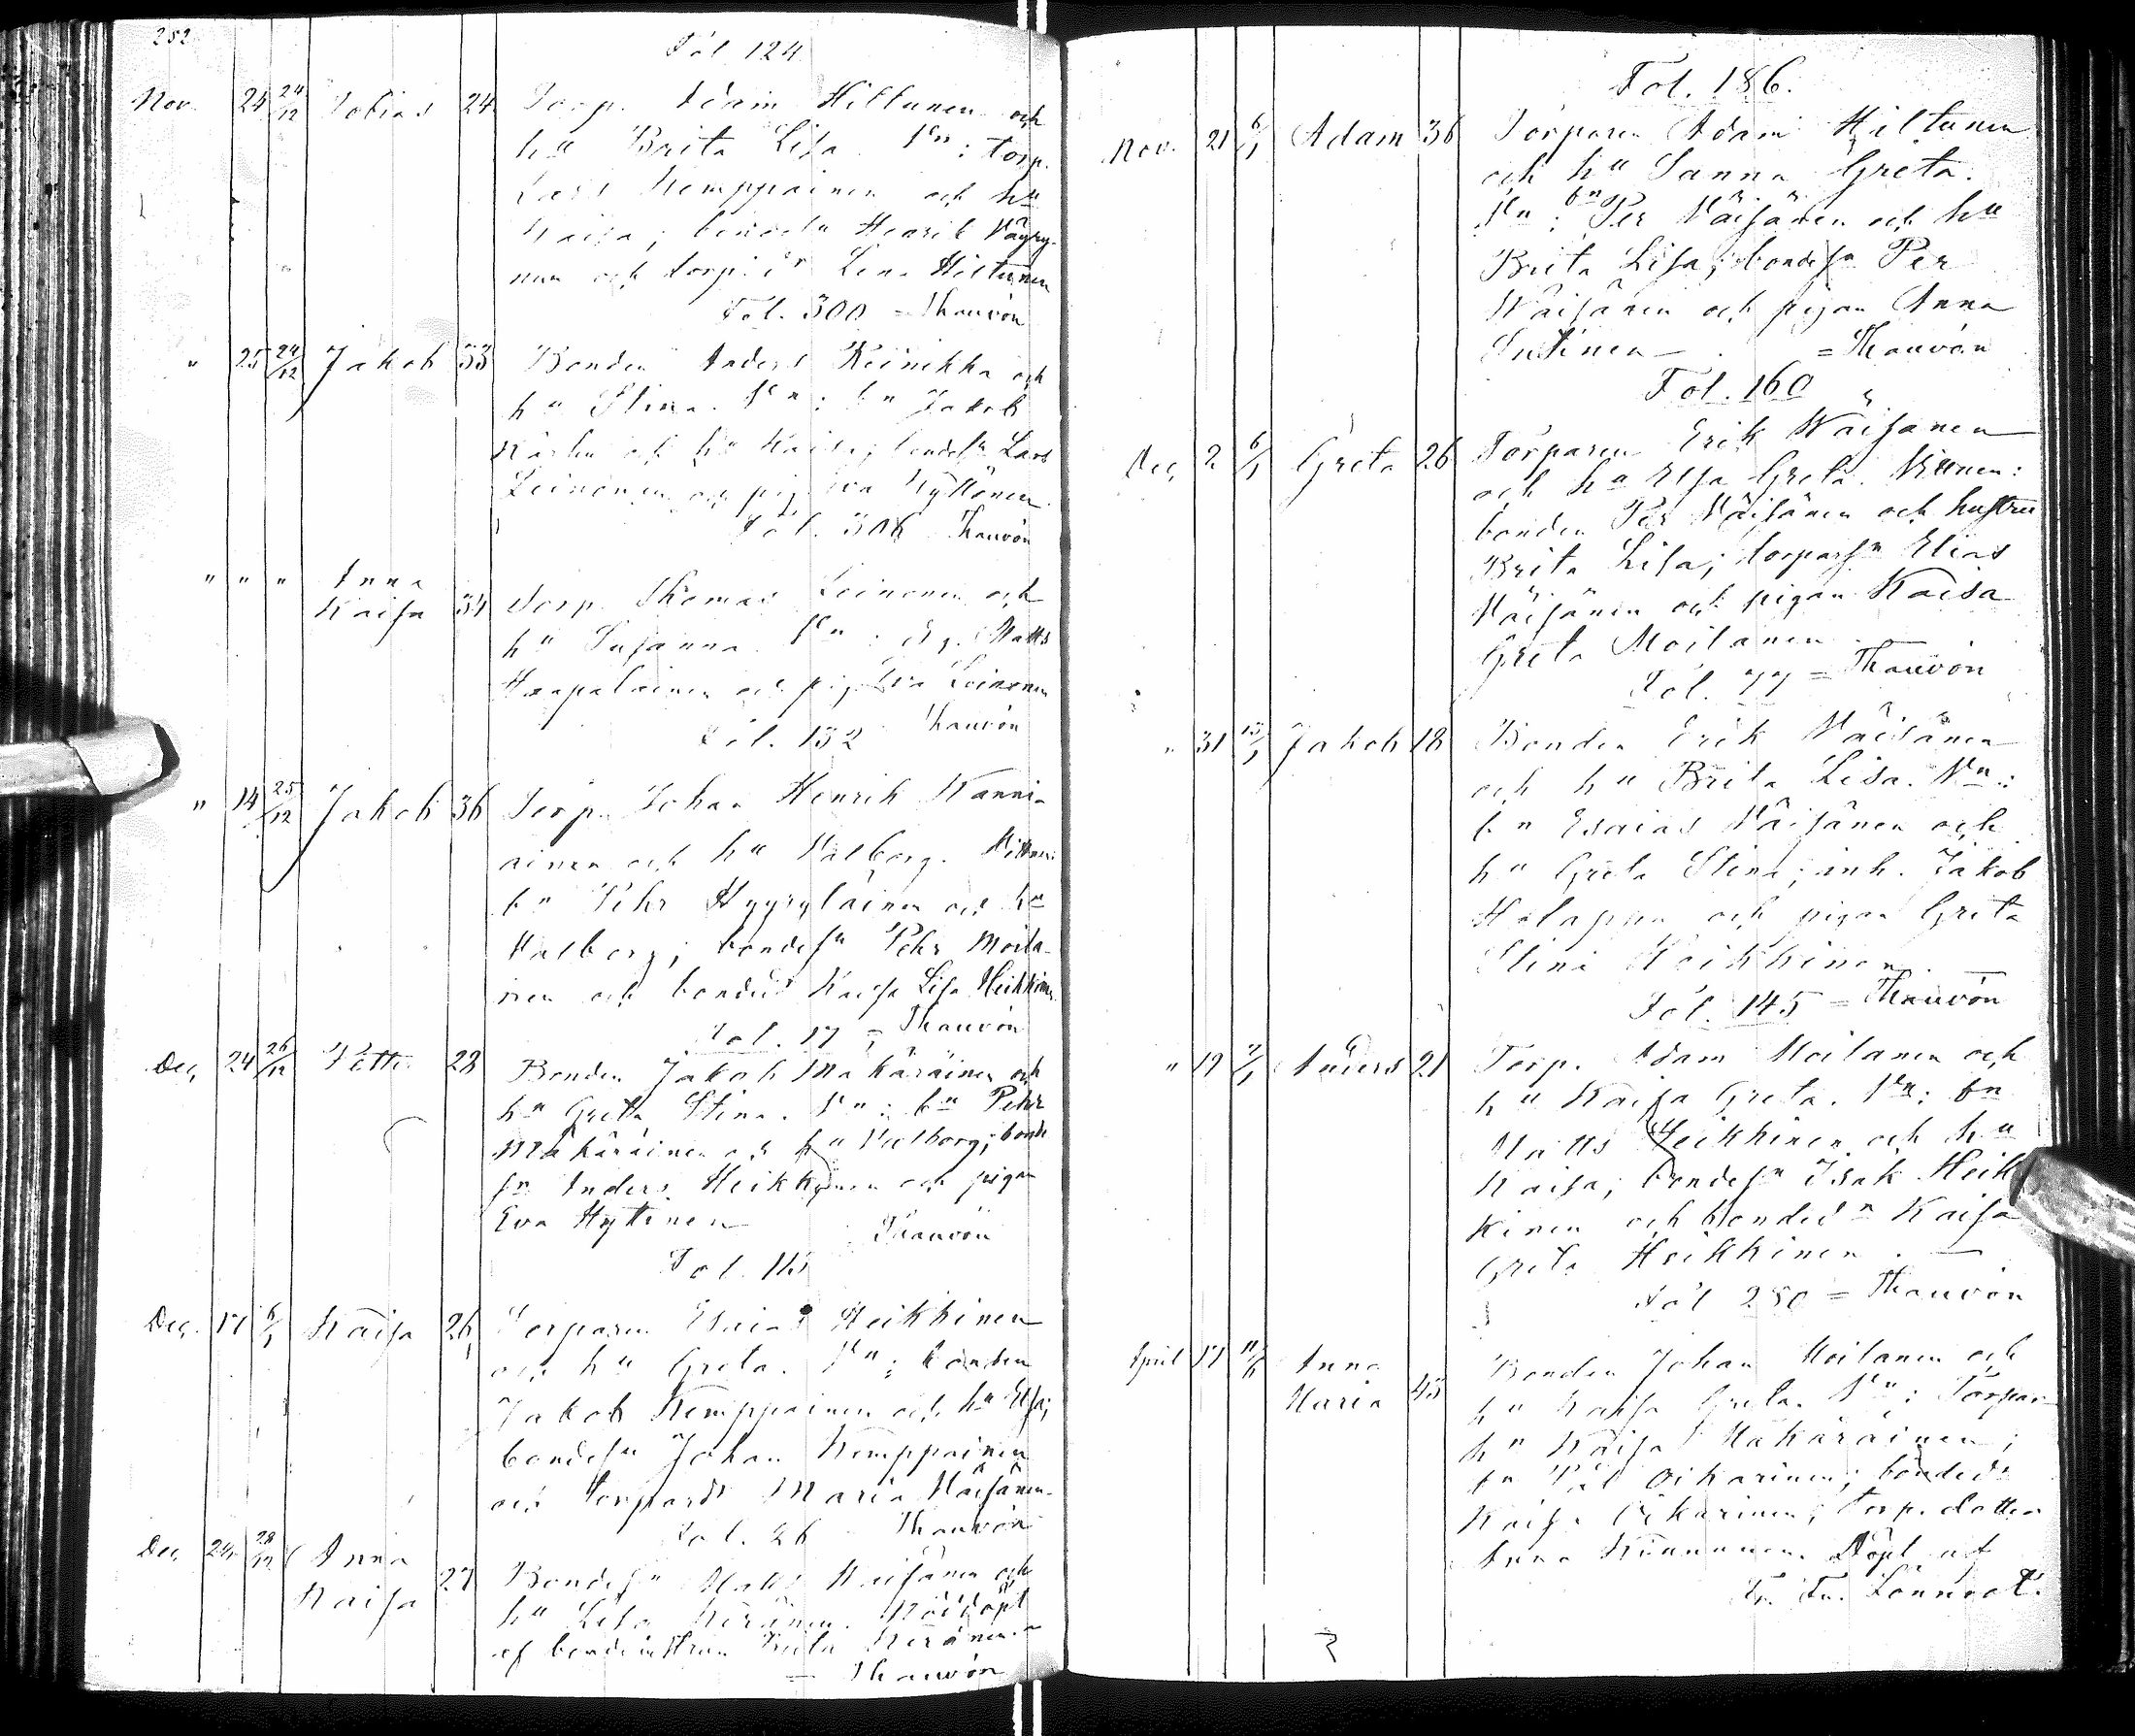 252
Fol. 124.
Nov. 24 24/12 Tobias 24 Torp. Adam Hiltunen och
hu Brita Lisa. Vn: torp.
Lars Kemppainen och hu
Kaisa; bondesn Henrik Väyry-
nen och torp. dr Lena Hiltunen
Fol. 300 = Thauvón
" 25 24/12 Jakob 33 Bonden Anders Keinikka och
hu Stina. Vn: bn Jakob
och hu Kaisa; bondesn Lars
Leinonen och pig. Eva Hyttönen.
Fol. 306 Thauvón
" " " Anna
Kaisa 34 Torp. Thomas Leinonen och
hu Susanna. Vn: Matts
Haapalainen och pig. Eva Leinonen
Fol. 132 Thauvón
" 14 25/12 Jakob 36 Torp. Johan Henrik Kanni-
ainen och hu Valborg. Vittnen:
bn Pehr Hyyryläinen och hu
Valborg; bondesn Pehr Moila-
nen och bondeds Kaisa Lisa Heikkinen
Fol. 17 = Thauvón
Dec. 24 26/12 28 Bonden Jakob Mäkäräinen och
hu Greta Stina. Vn: bn Pehr
Mäkäräinen och hu Valborg; bonde
sn Anders Heikkinen och pigan
Eva Hyttinen Thauvón
Fol. 115
Dec. 17 6/1 Kaisa 26 Torparen Esaias Heikkinen
och hu Greta. Vn: bonden
Jakob Kemppainen och hu Elsa;
bondesn Johan Kemppainen
och torpards Maria Väisänen.
Fol. 26 Thauvón
Dec. 24 28/12 Anna
Kaisa 27 Bondesn Matts Väisänen och
hu Lisa Keränen. Nöddöpt
af bondeinstrun Greta Keränen.
= Thauvón
Fol. 186.
Nov. 21 6/1 Adam 36 Torparen Adam Hiltunen
och hu Sanna Greta.
Vn: bn Per Väisänen och hu
Brita Lisa; bondesn Per
Wäisänen och pigan Anna
Sutinen = Thauvón
Fol. 160
Dec. 2 6/1 Greta 26 Torparen Erik Wäisänen
och hu Elsa Greta. Vittnen:
bonden Per Wäisänen och hustru
Brita Lisa; torparsn Elias
Väisänen och pigan Kaisa
Greta Moilanen
Fol. 77 = Thauvón
" 31 13/1 Jakob 18 Bonden Erik Väisänen
och hu Brita Lisa. Vn:
bn Esaias Väisänen och
hu Greta Stina; inh. Jakob
Halappa och pigan Greta
Stina Heikkinen.
Fol. 145 = Thauvón
" 19 7/1 Anders 21 Torp. Adam Moilanen och
hu Kaisa Greta. Vn: bn
Matts Heikkinen och hu
Kaisa; bondesn Isak Heik
kinen och bondedr Kaisa
Greta Heikkinen.
Fol 280 = Thauvón
April 17 Anna
Maria 43 Bonden Johan Moilanen och
hu Kaisa Greta. Vn: Torpar-
hu Kaisa Mäkäräinen;
bn Pål Oikarinen; bondeds
Kaisa Oikarinen; torp. dotter
Anna Kinnunen. Döpt af
Fr. Fn. Lönnrot.